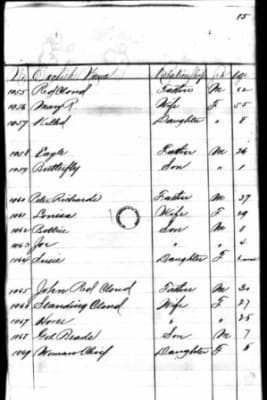 15
No. English Name Relationship Sex Age
1055 Red Cloud Father M 62
1056 Mary R. Wife F 55
1057 Killed Daughter " 8
1058 Eagle Father M 26
1059 Butterfly Son " 1
1060 Peter Richards Father M 37
1061 Louisa Wife F 29
1062 Son M 8
1063 Joe " " 4
1064 Susie Daughter F
1065 John Red Cloud Father M 30
1066 Standing Cloud Wife F 27
1067 " " 25
1068 Son M 7
1069 Woman Chief Daughter F 5